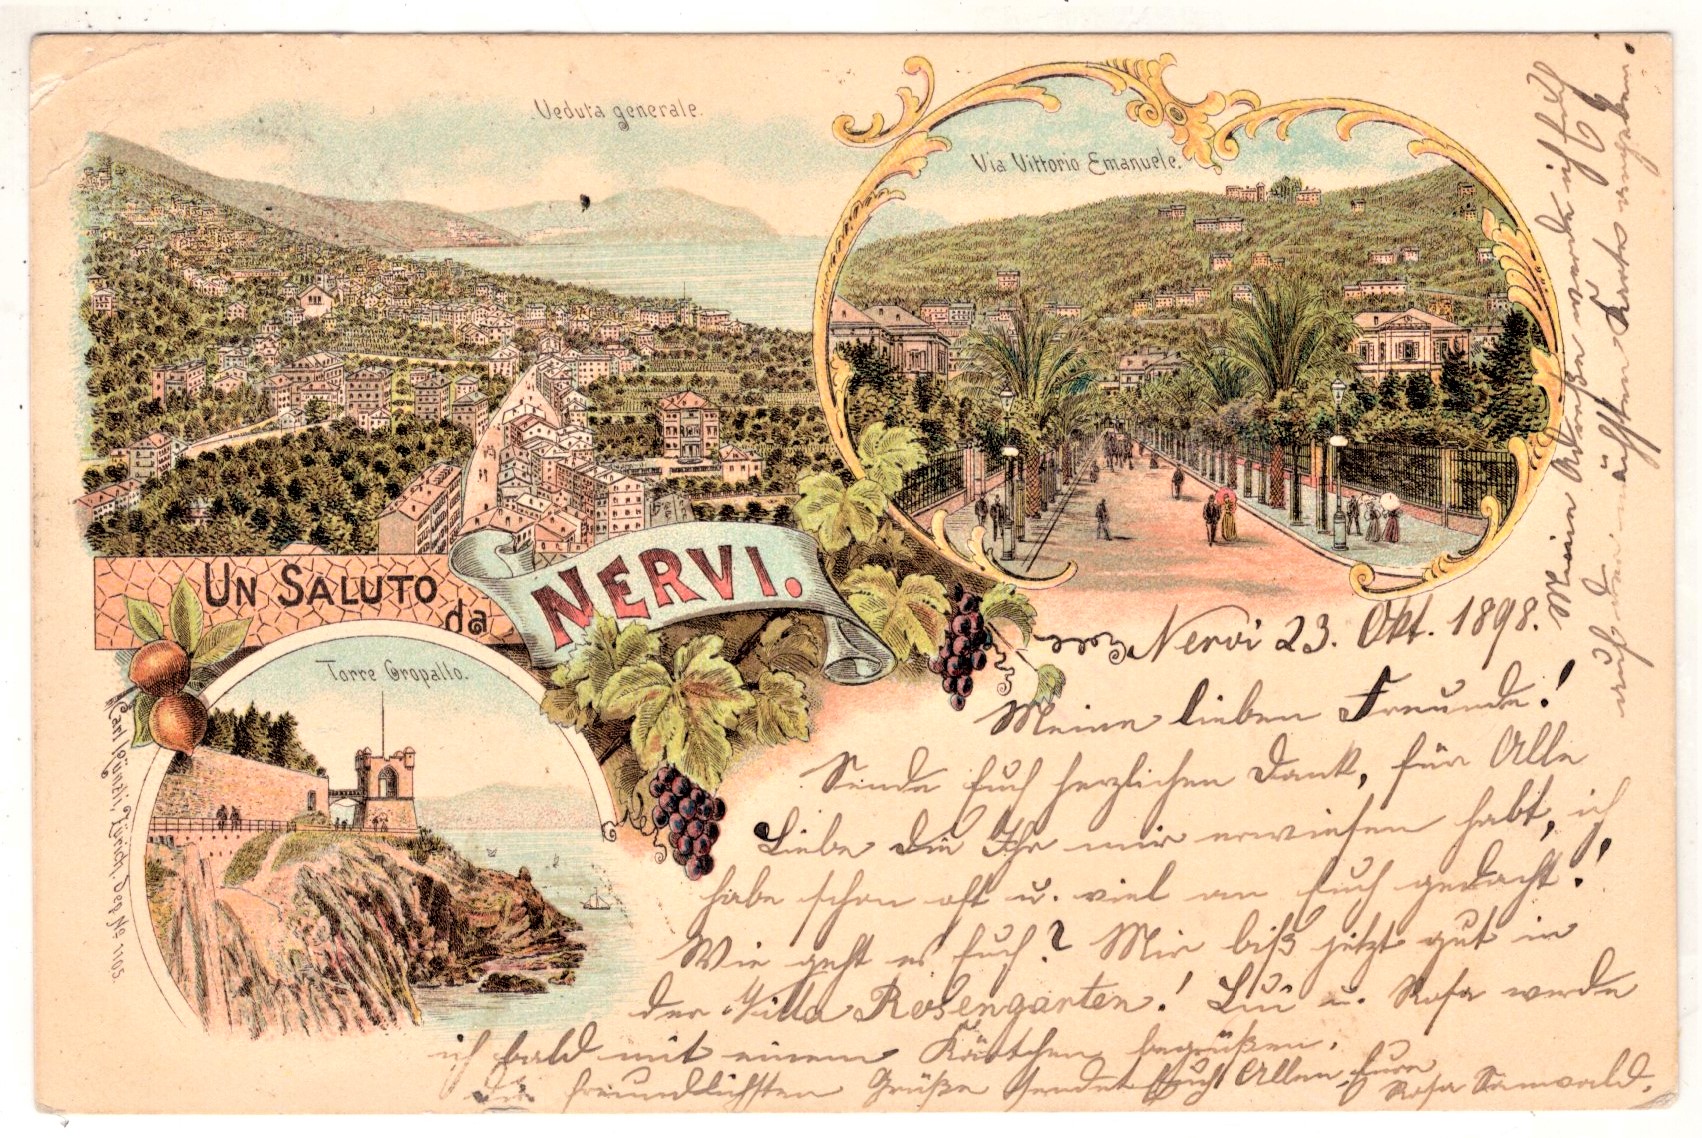 Veduta generale.
Via Vittorio Emanuele.
UN SALUTO
da
NERVI.
Torre Gropallo.
Karl Künzli, Zürich, Dep. No. 1105.
Nervi 23. Okt. 1898.
Meine lieben Freunde!
Sende Euch herzlichen Dank, für Alle
Liebe die Ihr mir erwiesen habt, ich
habe schon oft u. viel an Euch gedacht!
Wie geht es Euch? Mir bis jetzt gut in
der Villa Rosengarten! u. Rosa werde
ich bald mit einem Kärtchen begrüßen.
Die freundlichsten Grüße sendet Euch Allen Eure
Rosa
Meine Adresse werde ich Euch
auf der nächsten Karte angeben.